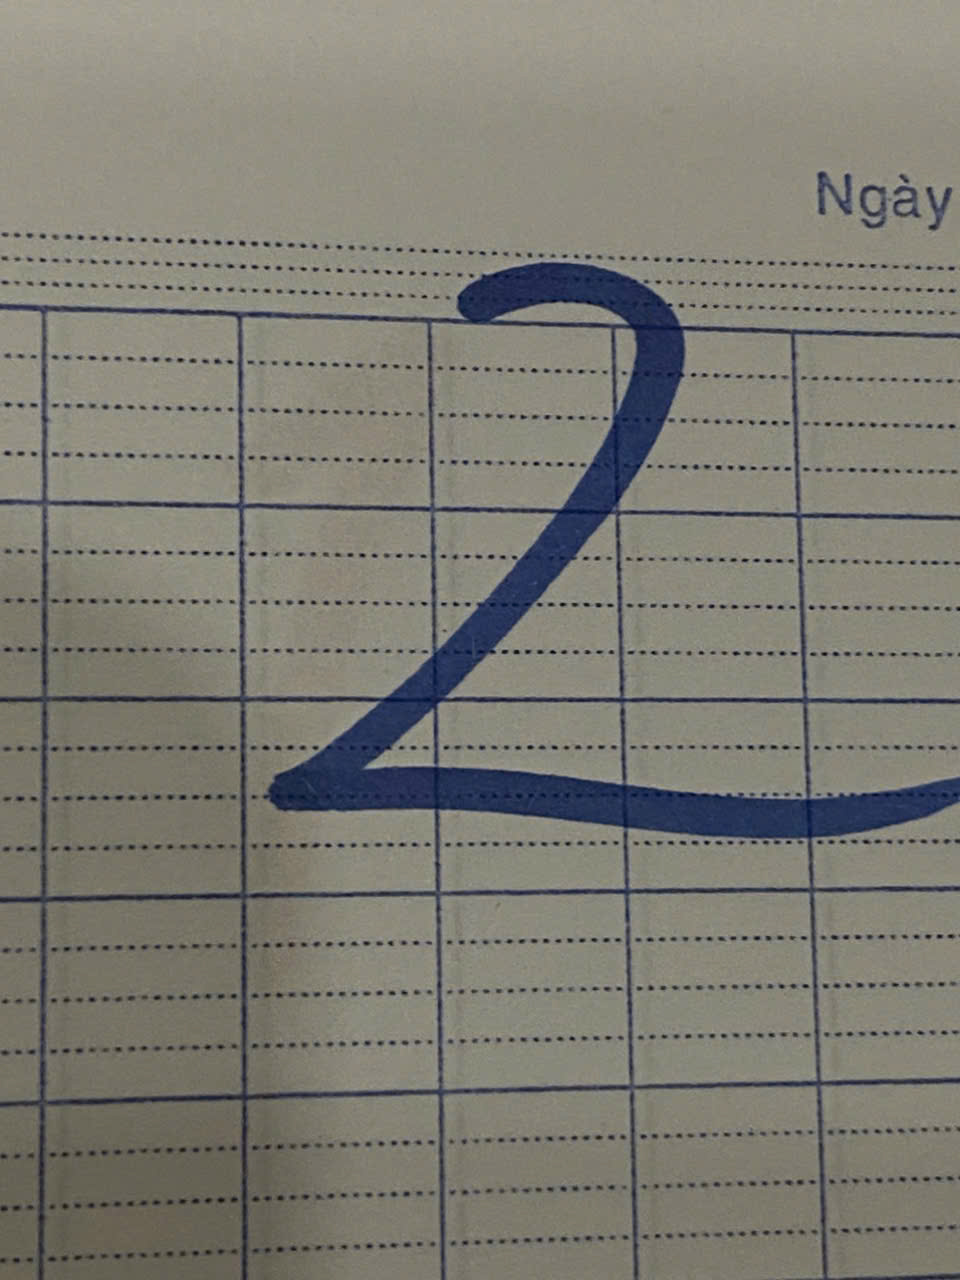 Ngày
2